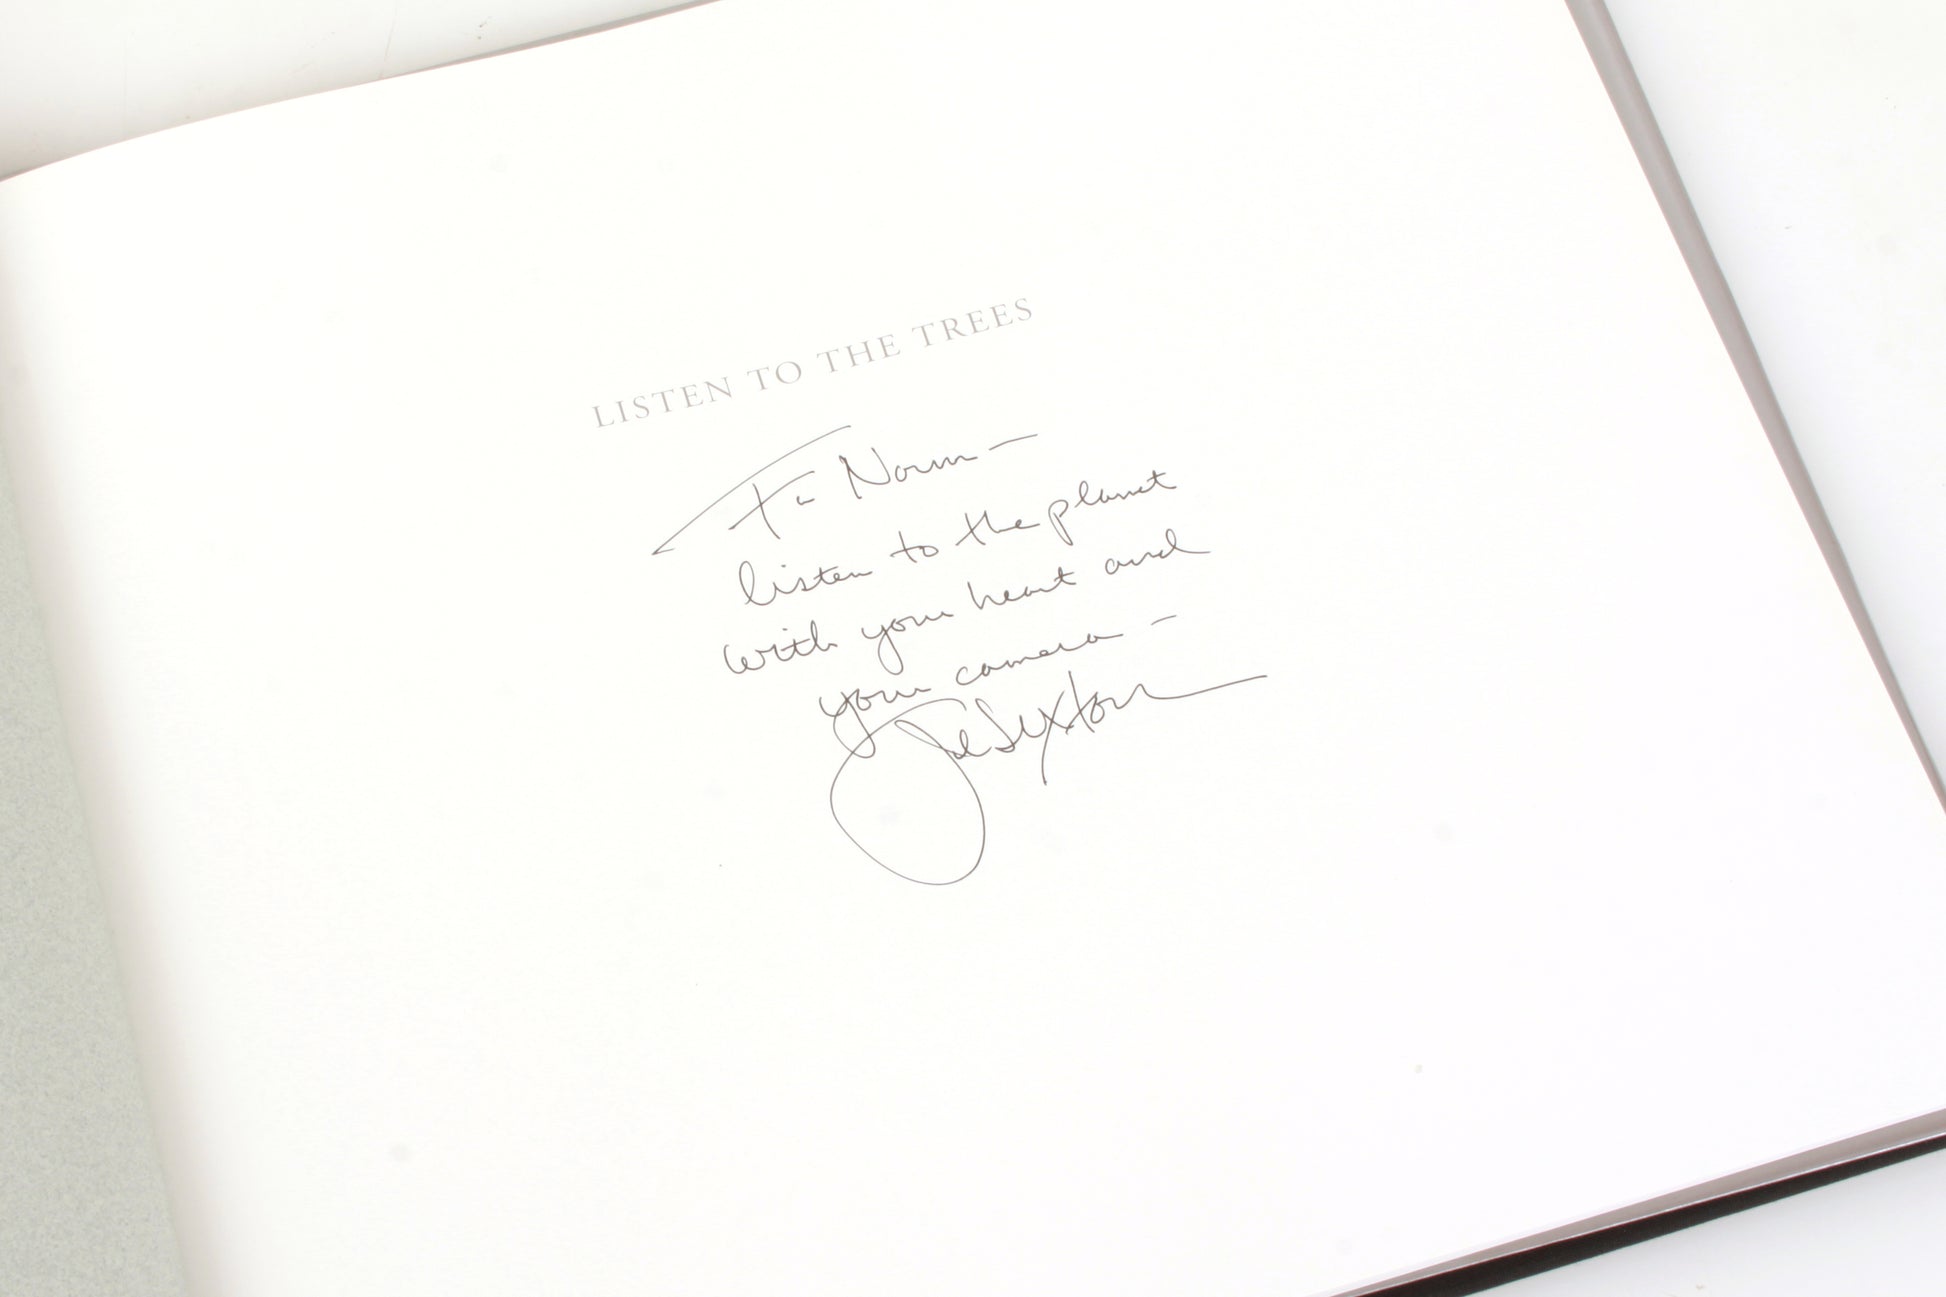 LISTEN TO THE TREES
For Norm —
listen to the planet
with your heart and
your camera —
John Sexton